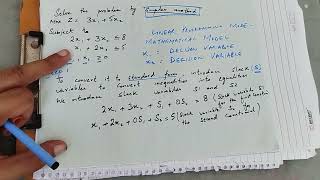 Solve the problem by Simplex method
Max Z = 3x₁ + 5x₂
Subject to
2x₁ + 3x₂ ≤ 8
x₁ + 2x₂ ≤ 5
x₂ ≥ 0
LINEAR PROGRAMMING MODEL
MATHEMATICAL MODEL
x₁ = DECISION VARIABLE
x₂ = DECISION VARIABLE
To convert it to standard form, introduce slack (S)
variables to convert inequalities into Equalities
We introduce slack variables S1 and S2
2x₁ + 3x₂ + S₁ + 0S₂ = 8 (Slack variable S1
for the first constraint
x₁ + 2x₂ + 0S₁ + S₂ = 5 (Slack variable S₂ for
the second constraint)